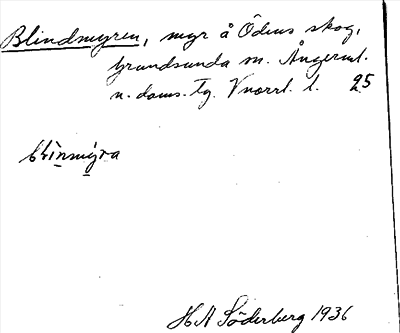 Blindmyren, myr å Ödens skog,
Grundsunda sn. Ångerml.
n. doms. tg. Vnorrl. l. 25
H A Söderberg 1936